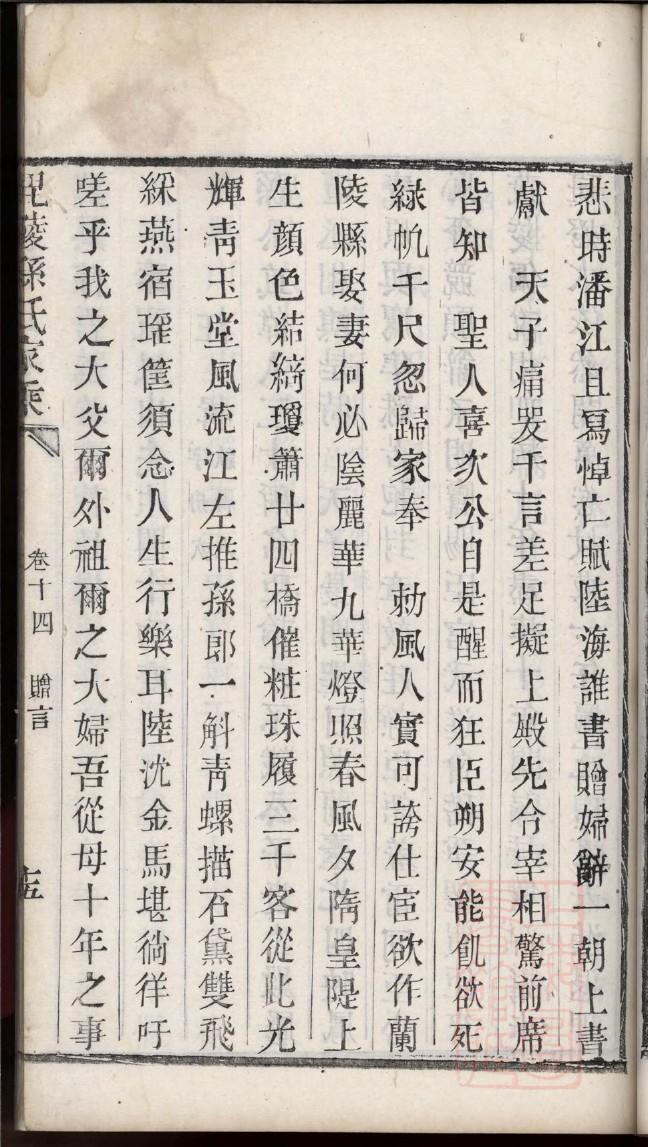 悲時潘江且寫悼亡賦陸海誰書贈婦辭一朝上書
獻　天子痛哭千言差足擬上殿先令宰相驚前席
皆知　聖人喜次公自是醒而狂臣朔安能飢欲死
緑帆千尺忽歸家奉　勅風人實可誇仕宦欲作蘭
陵縣娶妻何必陰麗華九華燈照春風夕隋皇隄上
生顔色結綺瓊簫廿四橋催粧珠履三千客從此光
輝青玉堂風流江左推孫郎一斛青螺描石黛雙飛
綵燕宿瑶筐須念人生行樂耳陸沈金馬堪徜徉吁
嗟乎我之大父爾外祖爾之大婦吾從母十年之事
毘陵孫氏家乘
卷十四　贈言
十五